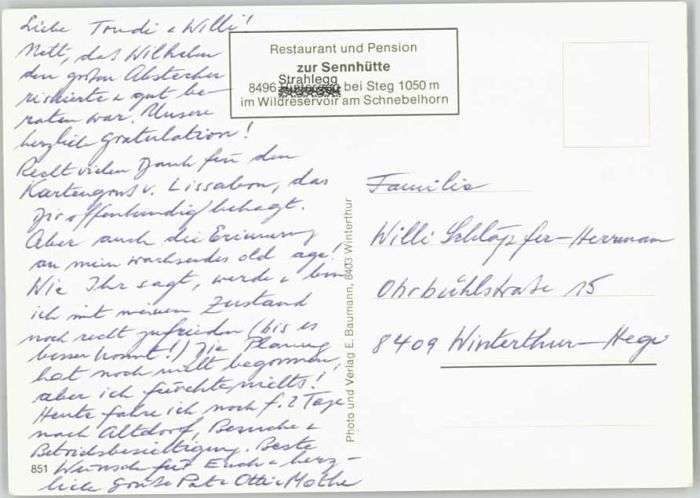 Liebe Trudi + Willi!
Nett, dass Wilhelm
den grossen Abstecher
riskierte + gut be-
raten war. Unsere
herzliche Gratulation!
Recht vielen Dank für den
Kartengruss v. Lissabon, das
Dir offenkundig behagt.
Aber auch die Erinnerung
an mein wachsendes old age!
Wie Ihr sagt, werde + bin
ich mit meinem Zustand
noch recht zufrieden (bis es
besser kommt!) Die Planung
hat noch nicht begonnen,
aber ich fürchte nichts!
Heute fahre ich noch f. 2 Tage
nach Altdorf, Besuche +
Betriebsbesichtigung. Beste
Wünsche für Euch + herz-
liche Grüsse
851
Restaurant und Pension
zur Sennhütte
Strahlegg
8496 bei Steg 1050 m
im Wildreservoir am Schnebelhorn
Photo und Verlag E. Baumann, 8403 Winterthur
Familie
Willi Schläpfer-Herrmann
Ohrbühlstrasse 15
8409 Winterthur-Hegi